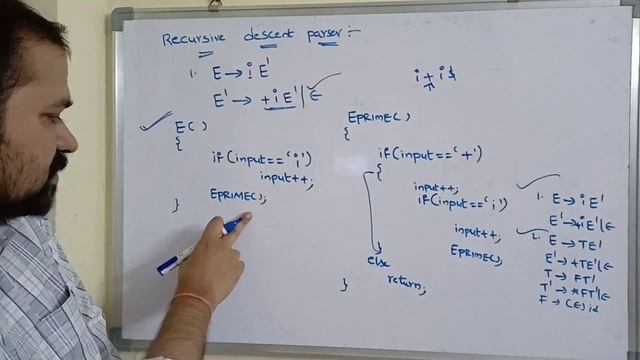 Recursive descent parser :-
1. E → i E'
E' → + i E' | ε
i + i $
↑
E( )
{
if (input == 'i')
input++;
EPRIME( );
}
EPRIME( )
{
if (input == '+')
{
input++;
if (input == 'i')
input++;
EPRIME( );
}
else
return;
}
1. E → i E'
E' → + i E' | ε
2. E → T E'
E' → + T E' | ε
T → F T'
T' → * F T' | ε
F → (E) | id